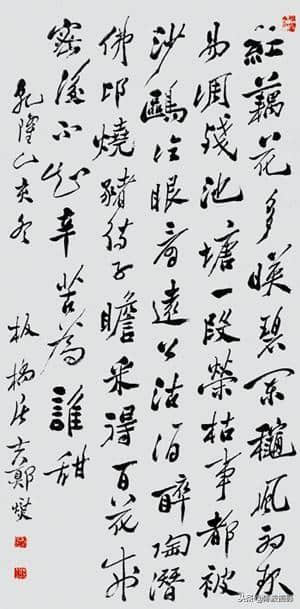 紅藕花多暎碧闌龝風初
易凋殘池塘一段榮枯事都被
沙鷗冷眼看遠公沽酒醉陶潛
佛印燒豬待子瞻采得百花成
蜜後不知辛苦為誰甜
乾隆亥冬
板橋居士鄭燮